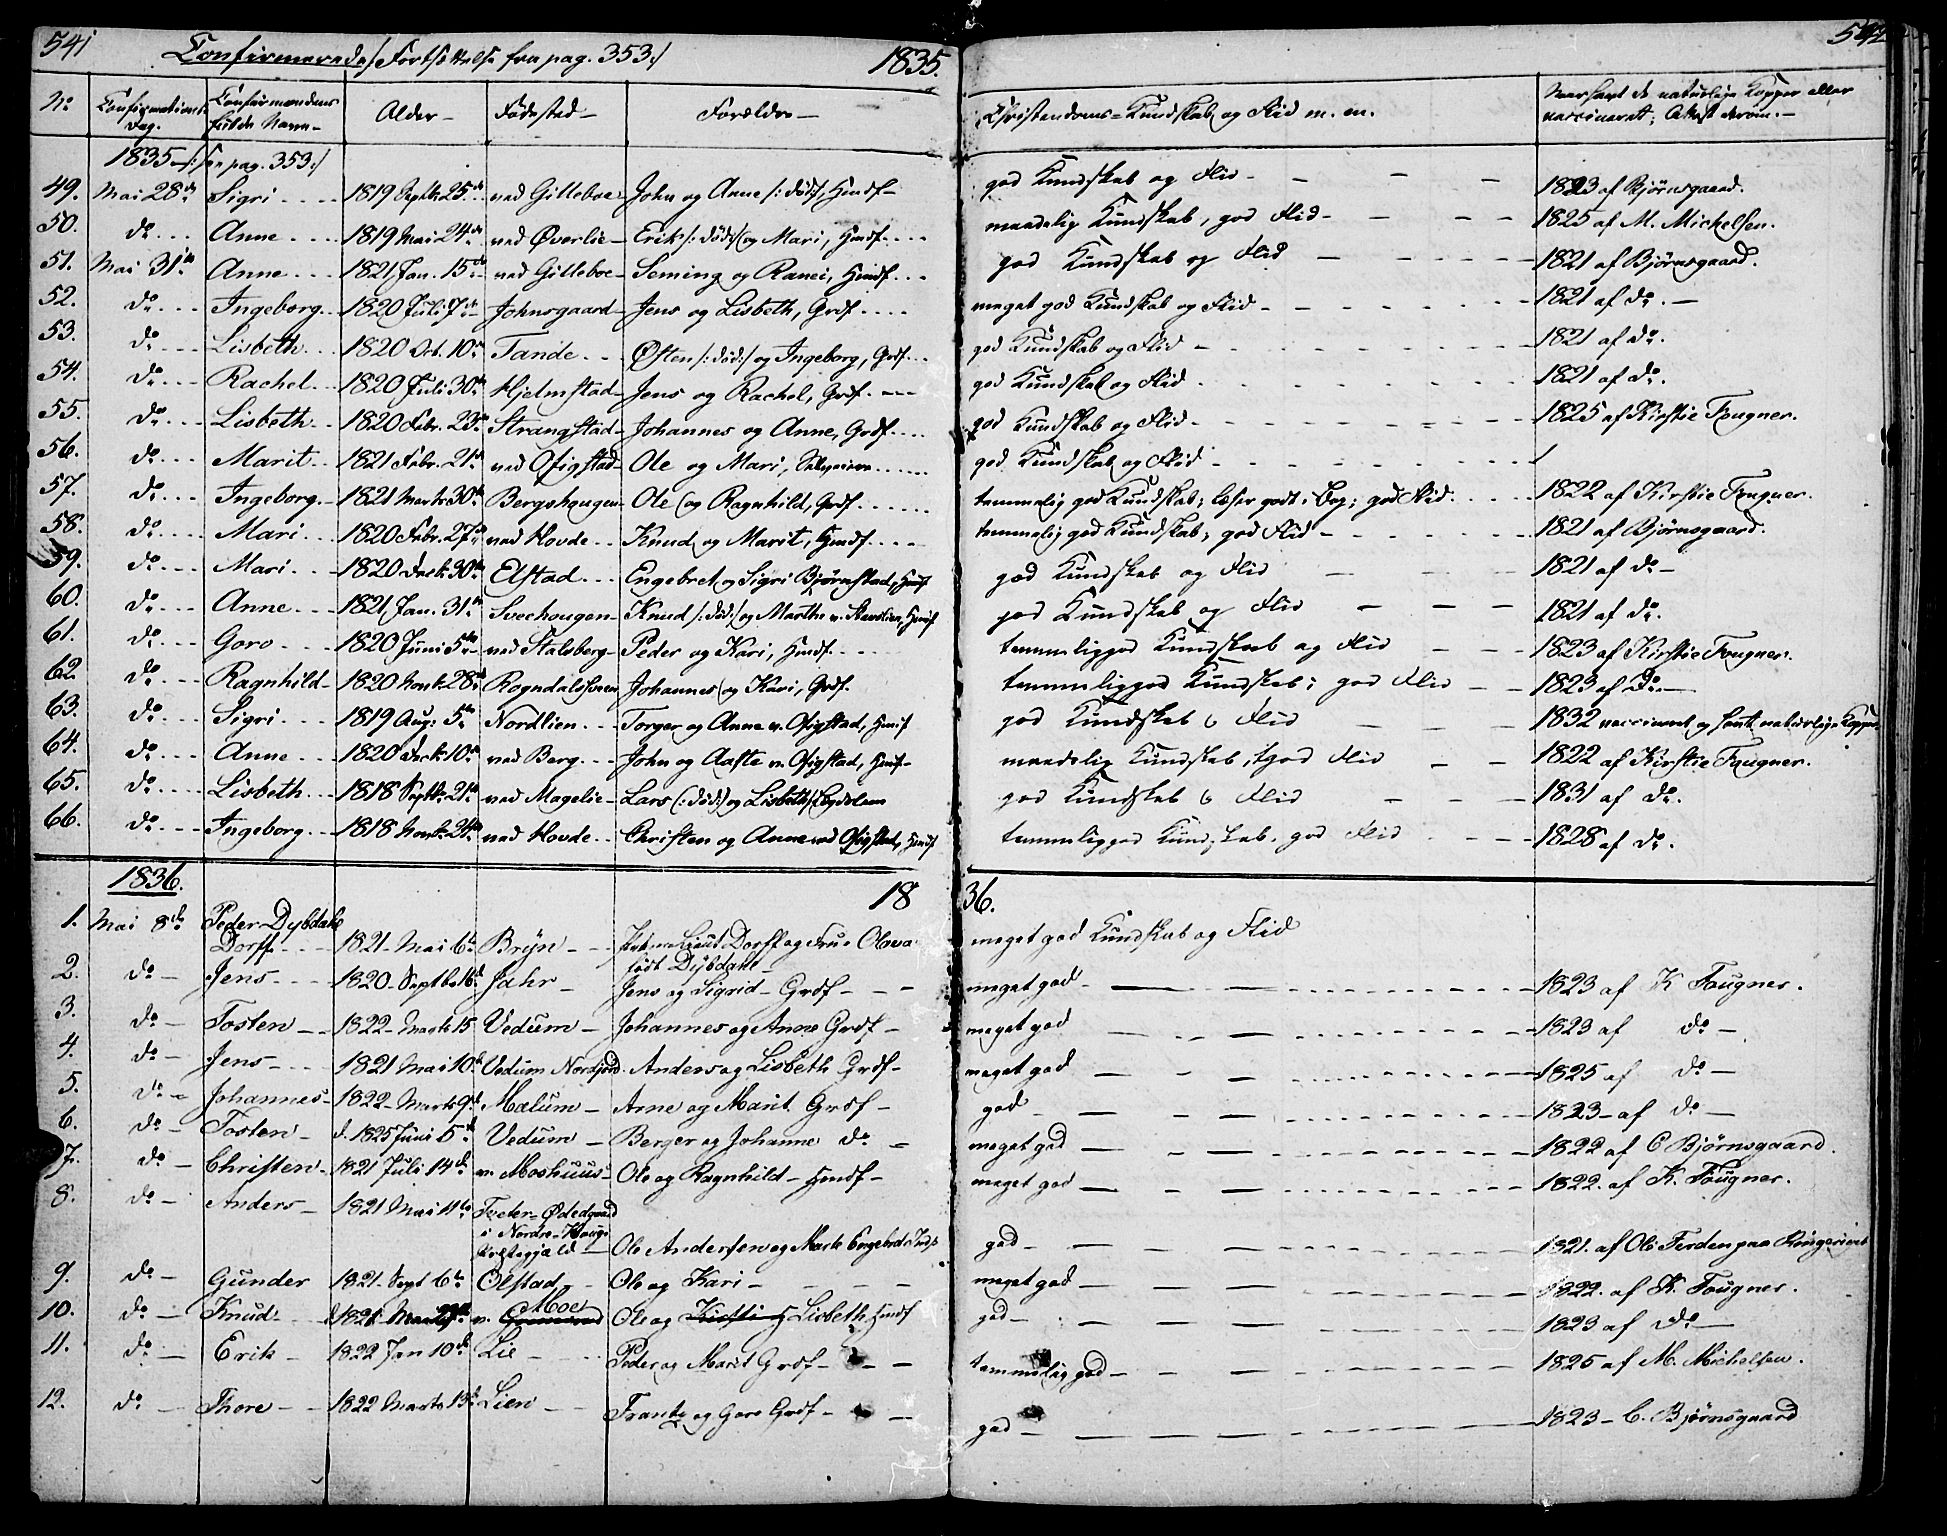 541 Confirmerede /: Fortsættelse fra pag. 353 :/ 1835. 542
No Confirmations Dag. Confirmandens fulde Navn – Alder – Fødested – Forældre – Christendoms-Kundskab og Flid m. m. Naar havt de naturlige Kopper eller vaccineret; Attest derom. –
1835 /: See pag. 353 :/
49. Mai 28de Sigri 1819 Septb. 25de ved Gilleboe John og Anne /: død :/, Hmdf – god Kundskab og Flid – 1823 af Bjørnsgaard.
50. do Anne 1819 Mai 24de ved Øverlie – Erik /: død :/ og Mari, Hmdf. maadelig Kundskab, god Flid – 1825 af M. Michelsen.
51. Mai 31te Anne 1821 Jan. 15de ved Gilleboe – Seming og Ranei, Hmdf. god Kundskab og Flid 1821 af Bjørnsgaard.
52. do Ingeborg 1820 Juli 7de Johnsgaard – Jens og Lisbeth, Grdf. meget god Kundskab og Flid – 1821 af do. –
53. do Lisbeth 1820 Oct. 10de Tande Østen /: død :/ og Ingeborg, Grdf. god Kundskab og Flid – 1821 af do.
54. do Rachel 1820 Juli 30te Hjelmstad – Jens og Rachel, Grdf. god Kundskab og Flid 1821 af do.
55. do Lisbeth 1820 Febr. 23de Strangstad – Johannes og Anne, Grdf. god Kundskab og Flid – 1825 af Kirstie Fougner.
56. do Marit 1821 Febr. 21de ved Ofigstad – Ole og Mari, god Kundskab og Flid –
57. do Ingeborg 1821 Marts 30te Bergshougen – Ole og Ragnhild, Grdf. temmelig god Kundskab; læser godt i Bog; god Flid. 1822 af Kirstie Fougner.
58. do Mari 1820 Febr. 27de ved Hovde Knud og Marit, Hmdf. temmelig god Kundskab; god Flid – 1821 af Bjørnsgaard.
59. do Mari 1820 Decb. 30te Elstad Engebret og Sigri Bjørnstad, Hmdf god Kundskab og Flid 1821 af do –
60. do Anne 1821 Jan. 31te Svechougen – Knud /: død :/ og Marthe v. Hmdf god Kundskab og Flid 1821 af do.
61. do Goro 1820 Juni 5te ved Stalsberg – Peder og Kari, Hmdf. temmelig god Kundskab og Flid 1823 af Kirstie Fougner.
62. do Ragnhild – 1820 Novb. 28de Rogndalshoven Johannes og Kari, Grdf. temmelig god Kundskab; god Flid – 1823 af Do. –
63. do Sigri 1819 Aug. 5te Nordlien Torger og Anne v. Ofigstad, Hmdf god Kundskab & Flid 1832 vaccineret og havt naturlige Kopper
64. do Anne 1820 Decb. 10de ved Berg John og Aaste v. Ofigstad, Hmdf – maadelig Kundskab, god Flid 1822 af Kirstie Fougner.
65. do Lisbeth 1818 Septb. 21de ved Magelie – Lars /: død :/ og Lisbeth, god Kundskab & Flid 1831 af do.
66. do Ingeborg 1818 Novb. ved Hovde Christen og Anne ved Ofigstad, Hmdf temmelig god Kundskab, god Flid 1828 af do.
1836. 1836.
1. Mai 8de Peder Dybdahl
Dorff 1821 Mai 6te Bryn – Lieut. Dorff og Frue Olava meget god Kundskab og Flid
født Dybdahl –
2. do – Jens 1820 Septbr 16de Jahr – Jens og Sigrid – Grdf meget god 1823 af K Fougner.
3. do – Tosten – 1822 Marts 15 Vedum – Johannes og Anne Grdf – meget god 1823 af do –
4. do – Jens 1821 Mai 10de Vedum Nordjord Anders og Lisbeth Grdf – meget god 1825 af do –
5. do – Johannes – 1822 Marts 9de Mælum – Arne og Marit Grdf – god 1823 – af do –
6. do – Tosten – d. 1825 Juni 5te Vedum – Berger og Johanne do – meget god 1822 af C Bjørnsgaard.
7. do – Christen – 1821 Juli 14de v. Moshuus – Ole og Ragnhild – Hmdf – meget god 1822 af K. Fougner.
8. do – Anders – 1821 Mai 11te
i Nordre-
Præstegjeld – Ole Andersen og Marte god – 1821. af Ole Ferden paa Ringeriget
9. do – Gunder 1821 Sept 6te Olstad – Ole og Kari – meget god – 1822. af K. Fougner.
10. do – Knud 1821 Marts v. Moe Ole og Kirsti og Lisbeth Hmdf god – 1823 af do –
11. do – Erik – 1822 Jan 10de Lie – Peder og Marit Grdf – temmelig god – 1825 af M. Michelsen.
12. do – Thore – 1822 Marts 13de Lien – Frantz og Goro Grdf – god – 1823 – C. Bjørnsgaard